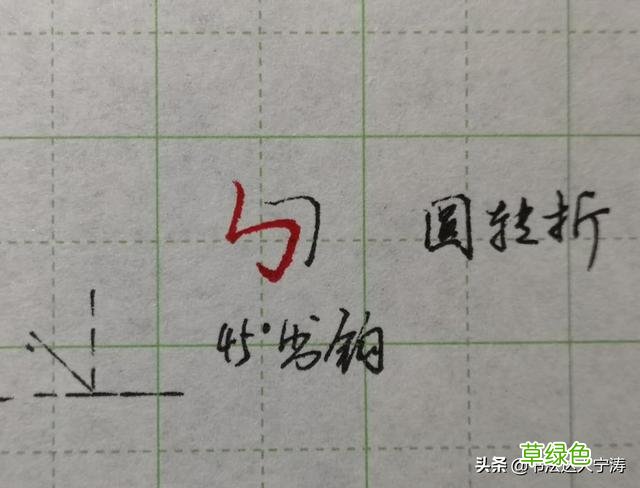 圆转折
45°出钩
草绿色
头条 @书法达人宁涛